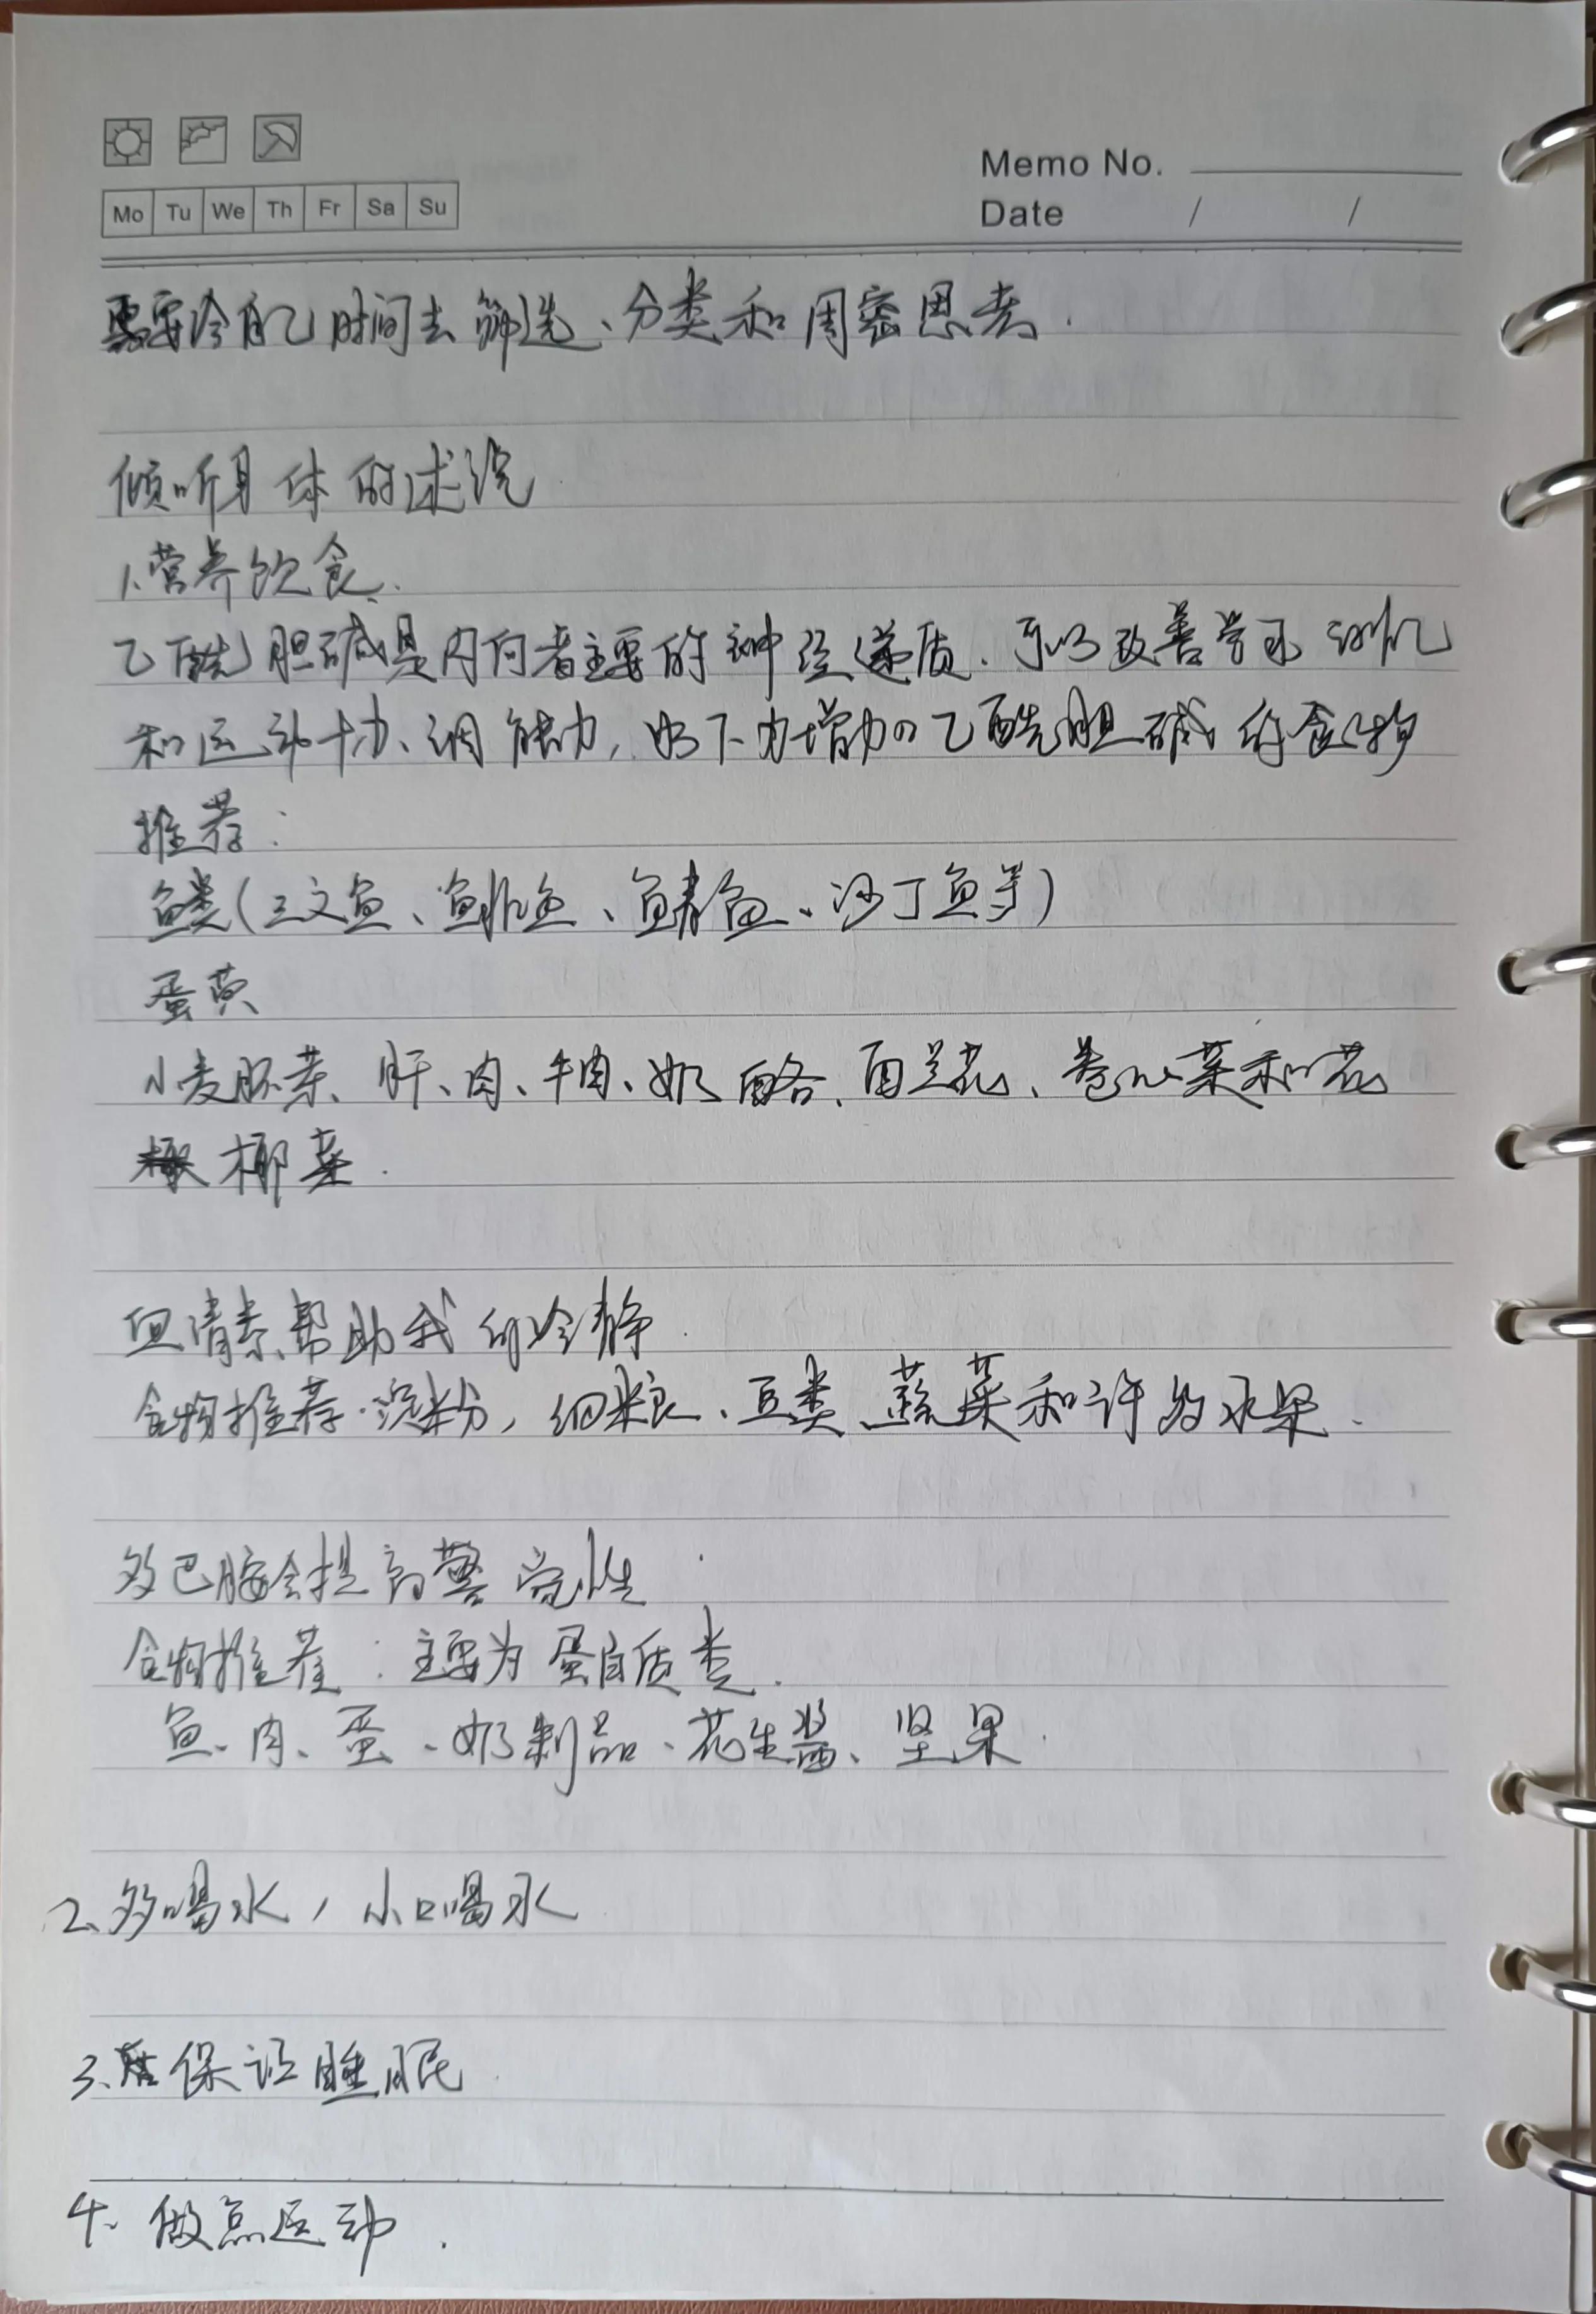 Memo No.
Mo Tu We Th Fr Sa Su
Date / /
需要给自己时间去筛选、分类和周密思考.
倾听身体的述说
1、营养饮食.
乙酰胆碱是内向者主要的神经递质.可以改善学习、动机
和运动协、调能力,如下为增加乙酰胆碱的食物
推荐:
鱼类(三文鱼、鲱鱼、鲭鱼、沙丁鱼等)
蛋黄
小麦胚芽、肝、肉、牛肉、奶酪、西兰花、卷心菜和花
椰菜.
血清素帮助我们冷静.
食物推荐:淀粉,细粮、豆类、蔬菜和许多水果.
多巴胺会提高警觉性
食物推荐:主要为蛋白质类.
鱼、肉、蛋、奶制品、花生酱、坚果.
2、多喝水,小口喝水
3、保证睡眠.
4、做点运动.